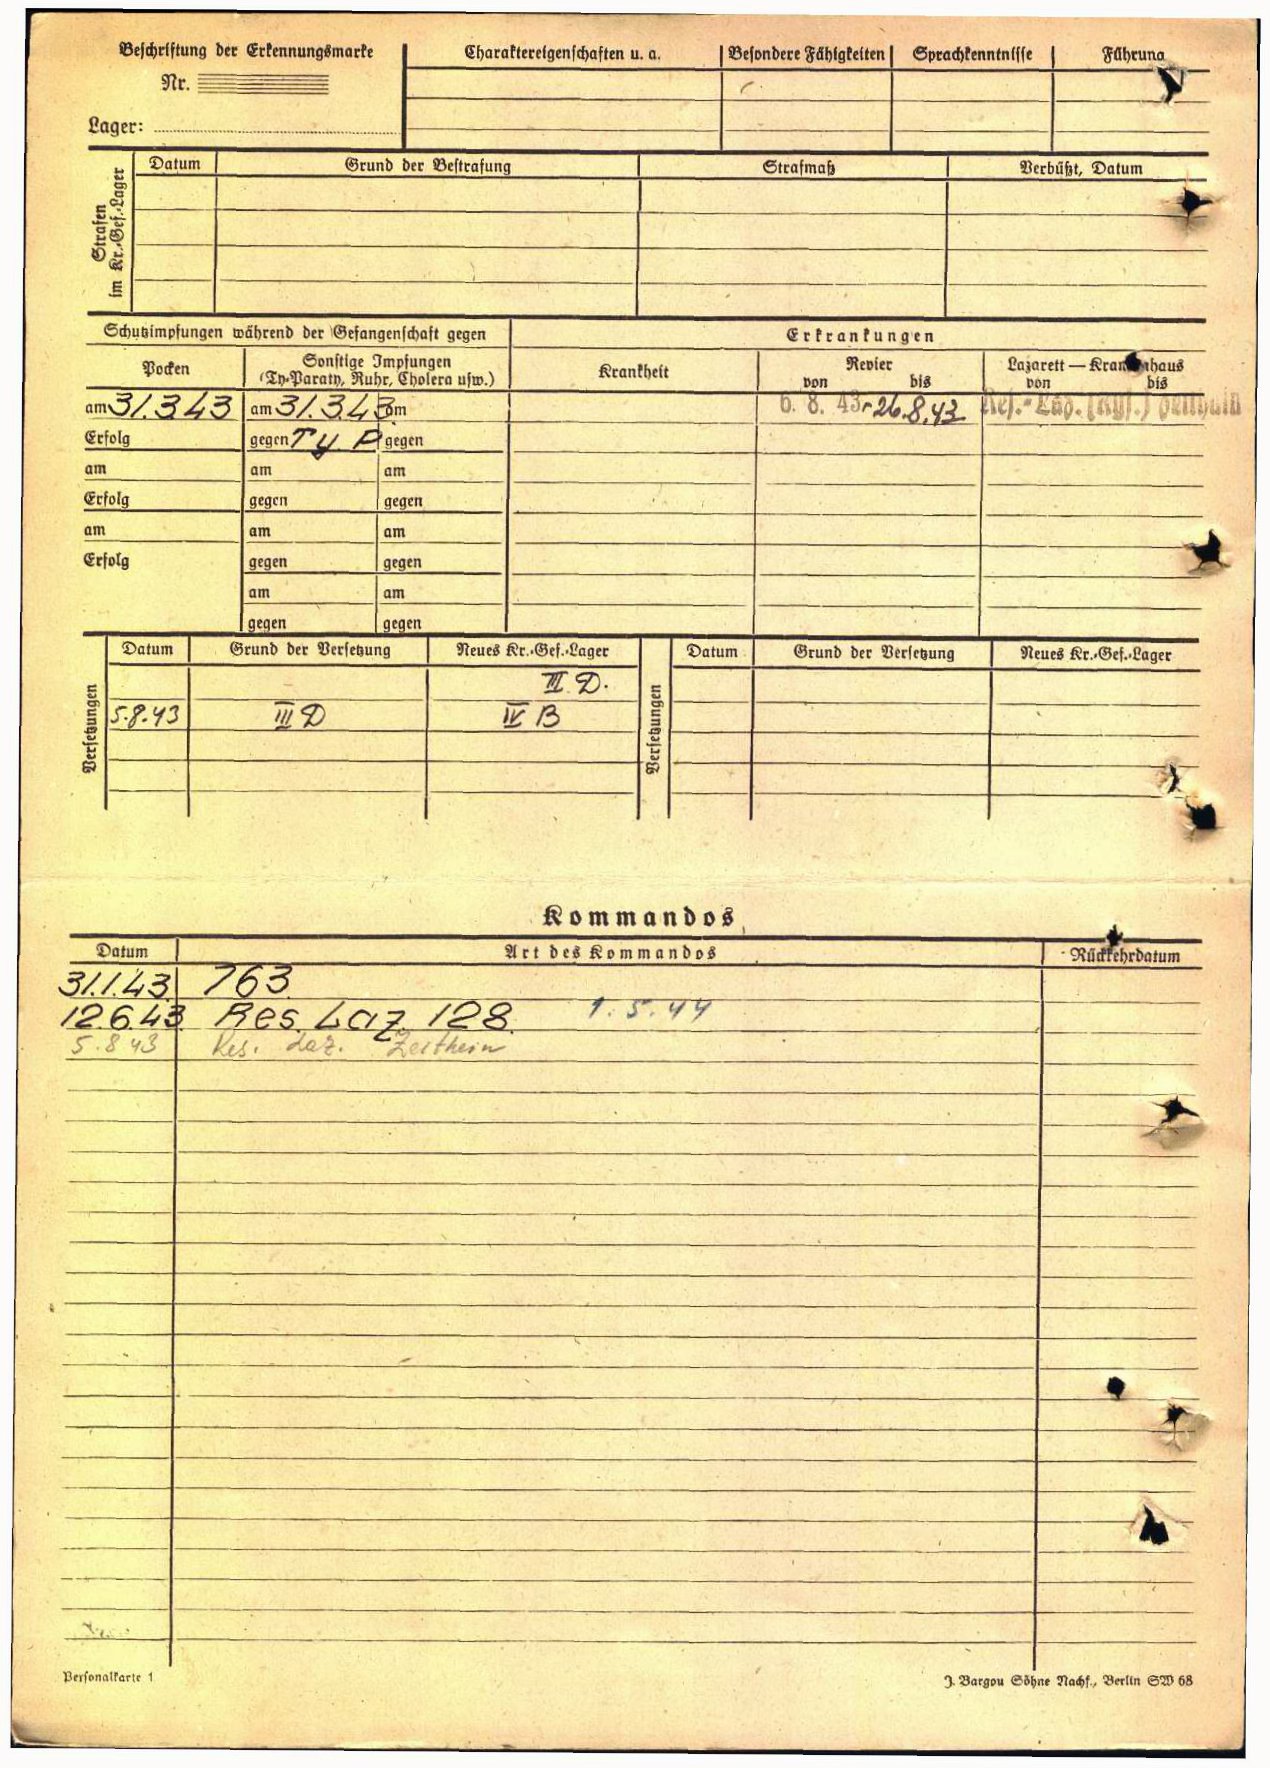 Beschriftung der Erkennungsmarke
Nr.
Lager:
Charaktereigenschaften u. a. Besondere Fähigkeiten Sprachkenntnisse Führung
Strafen im Kr.-Gef.-Lager
Datum Grund der Bestrafung Strafmaß Verbüßt, Datum
Schutzimpfungen während der Gefangenschaft gegen
Erkrankungen
Pocken
Sonstige Impfungen
(Ty-Paraty, Ruhr, Cholera usw.)
Krankheit
Revier
von bis
Lazarett — Krankenhaus
von bis
am 31.3.43 am 31.3.43 am 6. 8. 43 - 26.8.43 Res.-Laz.
Erfolg gegen Ty. P gegen
am am am
Erfolg gegen gegen
am am am
Erfolg gegen gegen
am am
gegen gegen
Versetzungen
Datum Grund der Versetzung Neues Kr.-Gef.-Lager
III D.
5.8.43 III D IV B
Versetzungen
Datum Grund der Versetzung Neues Kr.-Gef.-Lager
Kommandos
Datum Art des Kommandos Rückkehrdatum
31.1.43 763
12.6.43 Res. Laz. 128. 1.5.44
5.8 43 Res. Laz. Zeithein
Personalkarte 1
J. Bargou Söhne Nachf., Berlin SW 68